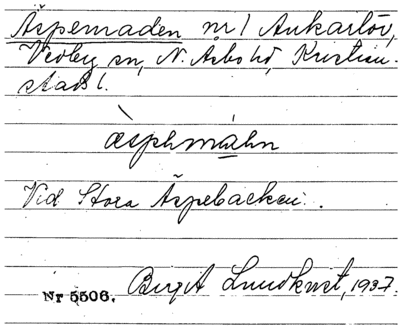 Äspemaden nr 1 Ankarlöv,
Vedby sn, N. Åsbo hd, Kristian-
stads l.
äsphmahn
Vid Stora Äspebacken.
Nr 5506. Birgit Lundkvist, 1937.